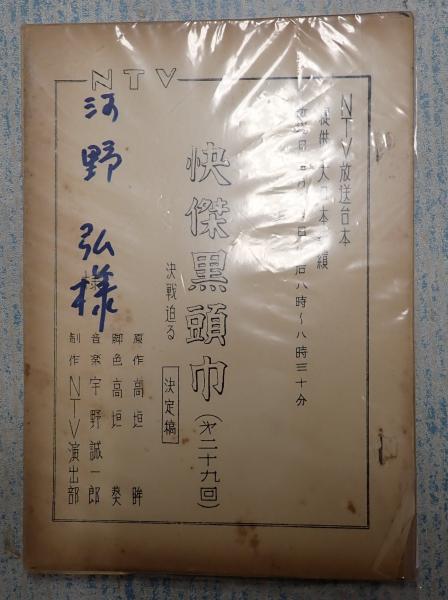 NTV
NTV放送台本
提供 大日本 績
八時~八時三十分
快傑黒頭巾(才二十九回)
決戦迫る 決定稿
原作 高垣 眸
脚色 高垣 葵
音楽 宇野誠一郎
制作 NTV演出部
河野 弘様
様